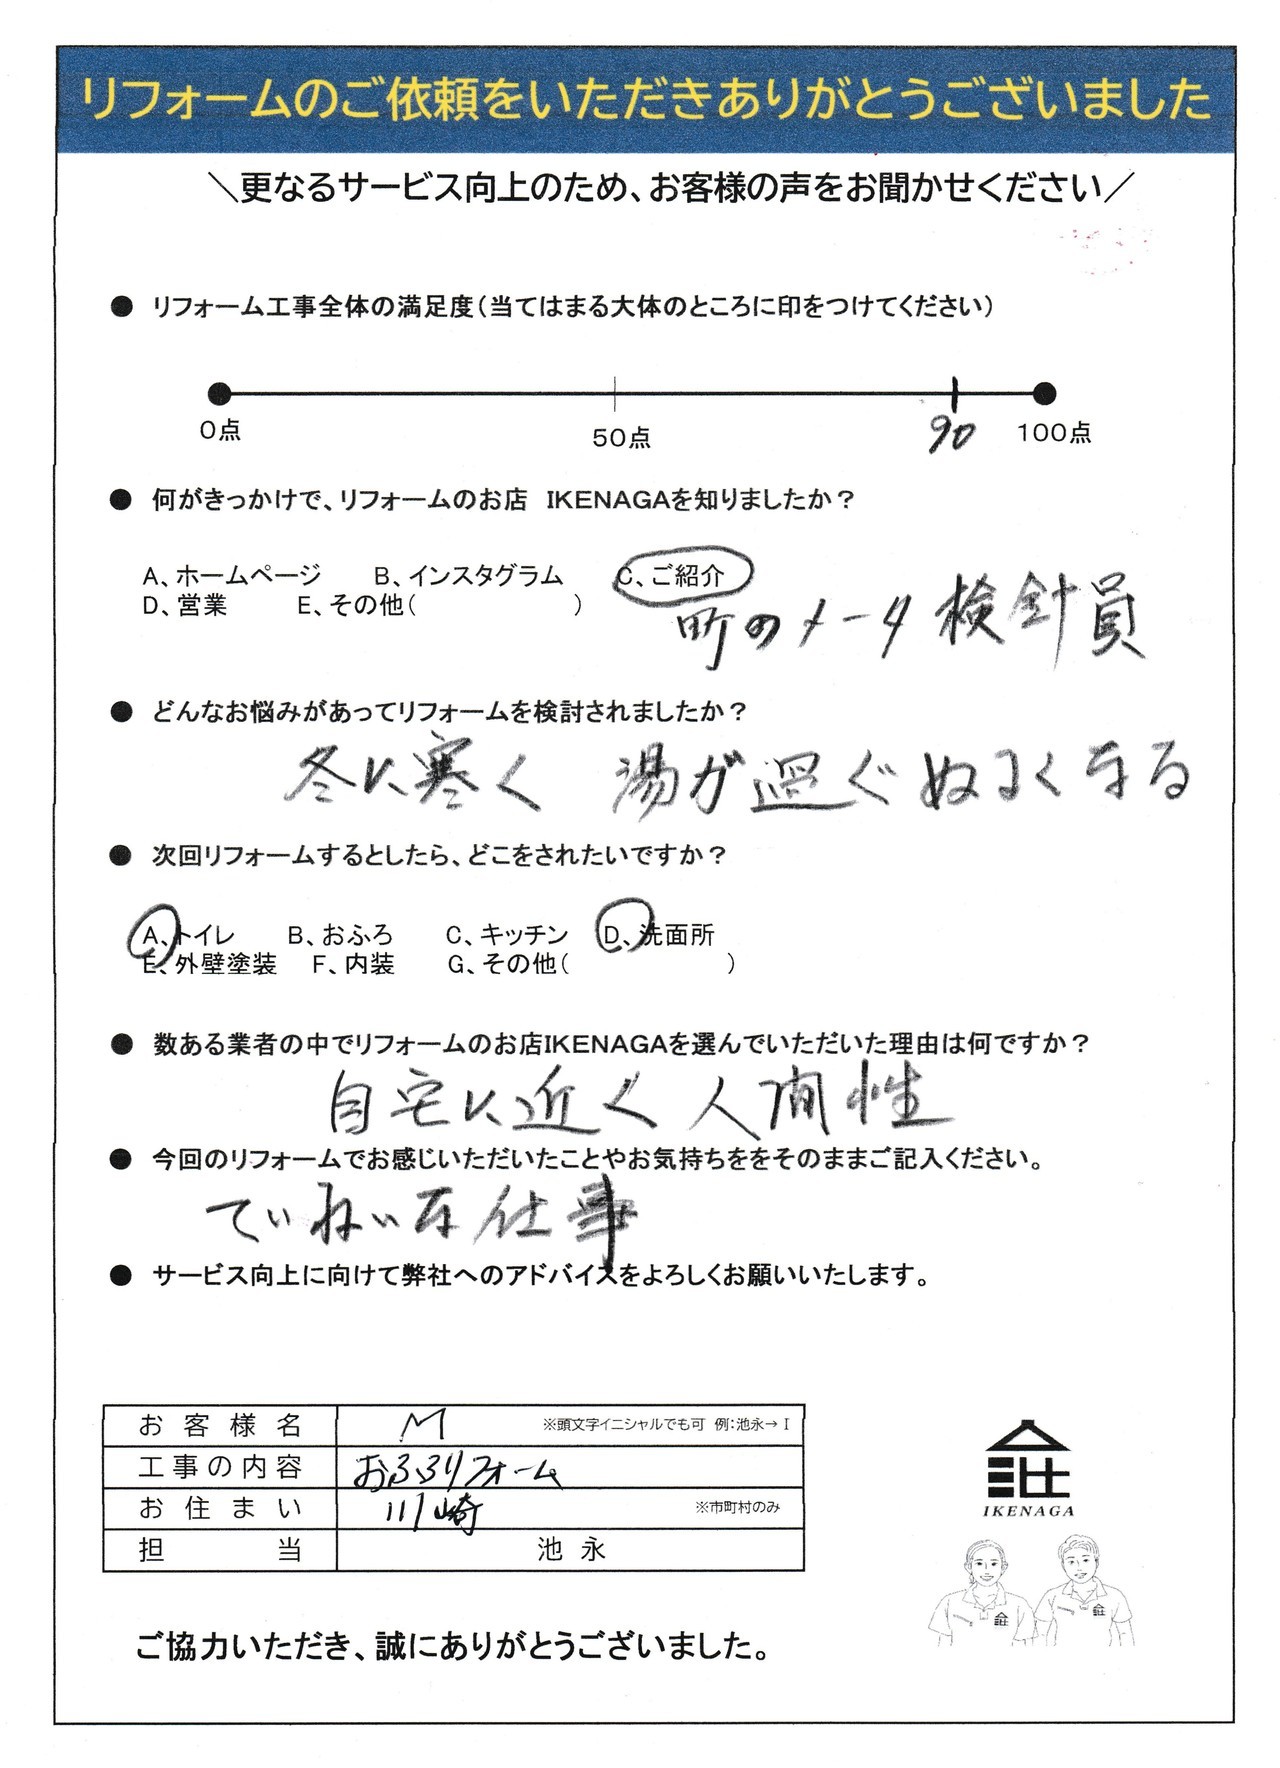 リフォームのご依頼をいただきありがとうございました
＼更なるサービス向上のため、お客様の声をお聞かせください／
● リフォーム工事全体の満足度（当てはまる大体のところに印をつけてください）
0点 50点 90 100点
● 何がきっかけで、リフォームのお店 IKENAGAを知りましたか？
A、ホームページ B、インスタグラム C、ご紹介
D、営業 E、その他（ ）
町のメータ検針員
● どんなお悩みがあってリフォームを検討されましたか？
冬に寒く 湯が過ぐぬるくなる
● 次回リフォームするとしたら、どこをされたいですか？
A、トイレ B、おふろ C、キッチン D、洗面所
E、外壁塗装 F、内装 G、その他（ ）
● 数ある業者の中でリフォームのお店IKENAGAを選んでいただいた理由は何ですか？
自宅に近く人間性
● 今回のリフォームでお感じいただいたことやお気持ちををそのままご記入ください。
ていねいな仕事
● サービス向上に向けて弊社へのアドバイスをよろしくお願いいたします。
お客様名 M ※頭文字イニシャルでも可 例：池永→I
工事の内容 おふろリフォーム
お住まい 川崎 ※市町村のみ
担当 池永
IKENAGA
ご協力いただき、誠にありがとうございました。